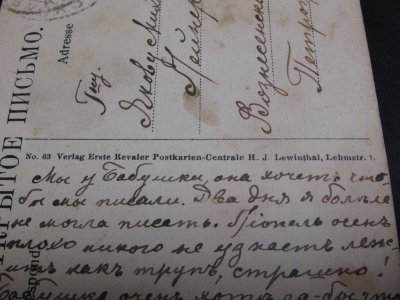 ОТКРЫТОЕ ПИСЬМО.
Adresse
Гну.
Якову
Вознесенск
Петрог
No. 63 Verlag Erste Revaler Postkarten-Centrale H. J. Lewinthal, Lehmstr. 1.
Мы у Бабушки, она хочетъ что
бы мы писали. Два дня я болѣла
не могла писать. очень
плохо никого не узнаетъ леж
итъ какъ трупъ, страшно!
Бабушка очень хотѣла бы что